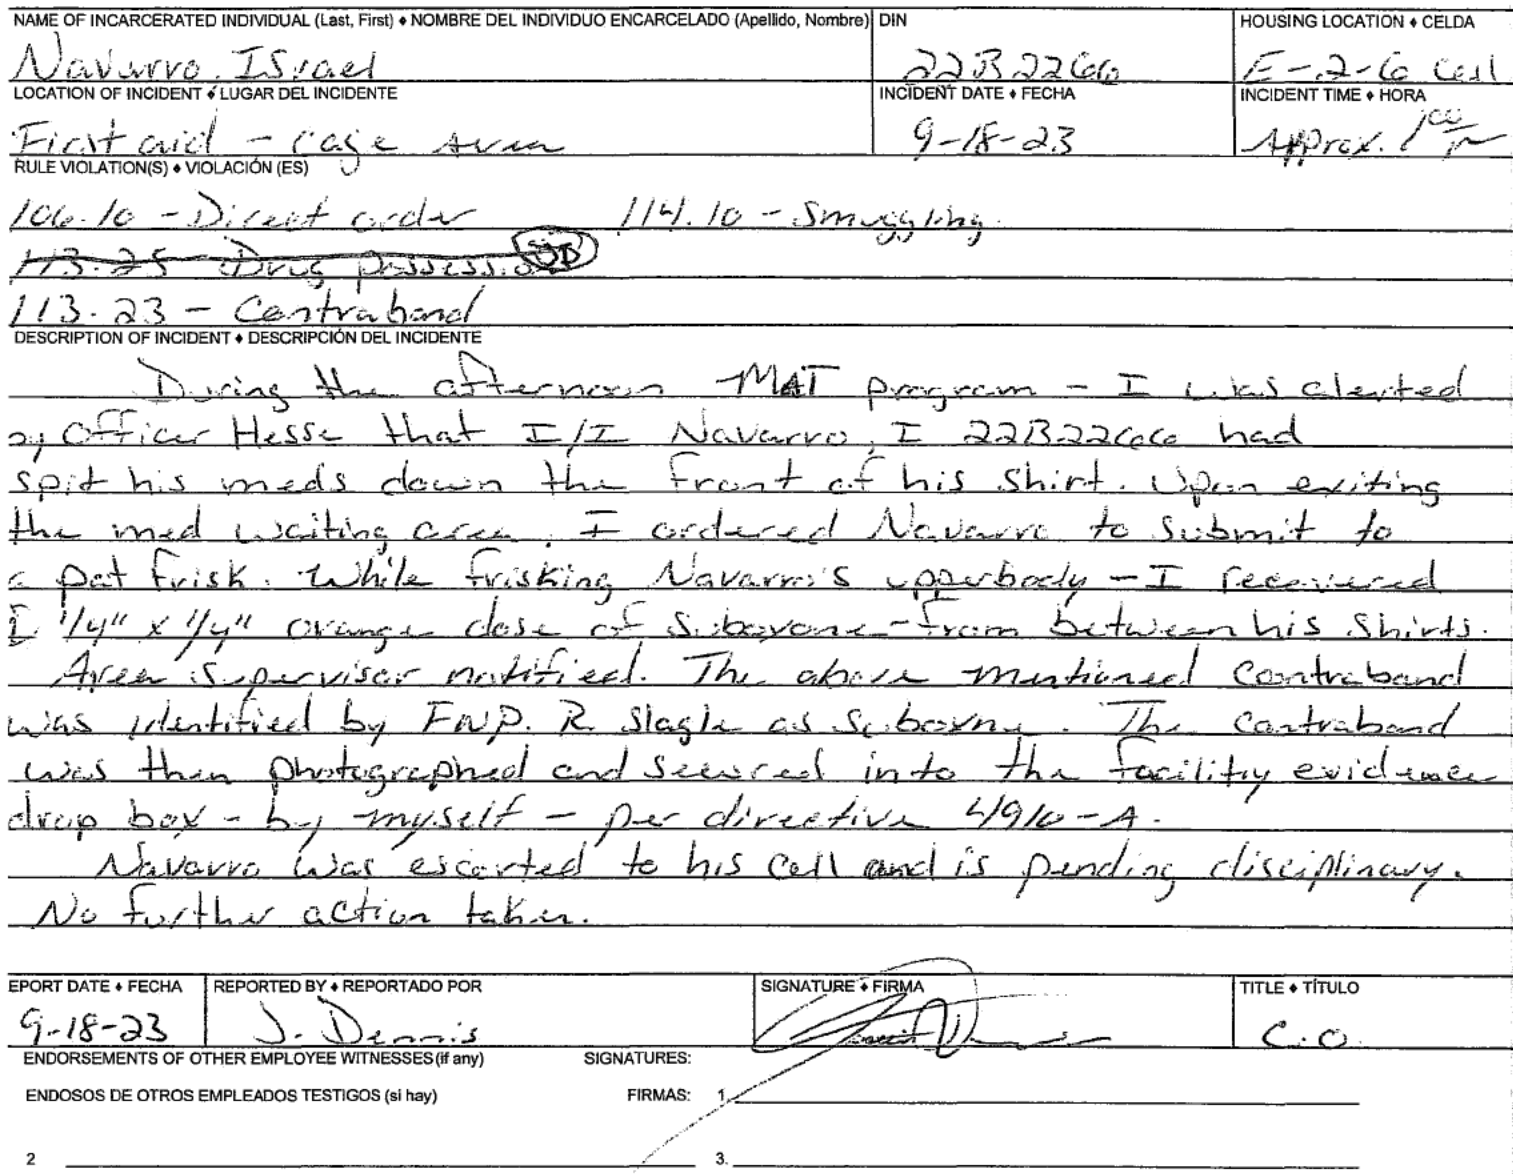 NAME OF INCARCERATED INDIVIDUAL (Last, First) ♦ NOMBRE DEL INDIVIDUO ENCARCELADO (Apellido, Nombre) DIN HOUSING LOCATION ♦ CELDA
Navarro, Israel 22B2266 E-2-6 Cell
LOCATION OF INCIDENT ♦ LUGAR DEL INCIDENTE INCIDENT DATE ♦ FECHA INCIDENT TIME ♦ HORA
First aid - Cage Area 9-18-23 Approx. 1 00
RULE VIOLATION(S) ♦ VIOLACIÓN (ES)
106.10 - Direct order 114.10 - Smuggling.
113.25 Drug possession
113.23 - Contraband
DESCRIPTION OF INCIDENT ♦ DESCRIPCIÓN DEL INCIDENTE
During the afternoon MAT program - I was alerted
by Officer Hesse that I/I Navarro, I 22B2266 had
spit his meds down the front of his shirt. Upon exiting
the med waiting area, I ordered Navarro to submit to
a pat frisk. While frisking Navarro's upperbody - I recovered
1/4" x 1/4" orange dose of Suboxone - from between his shirts.
Area supervisor notified. The above mentioned contraband
was identified by FNP. R. Slagle as Suboxne. The contraband
was then photographed and secured into the facility evidence
drop box - by myself - per directive 4910-A.
Navarro was escorted to his cell and is pending disciplinary.
No further action taken.
EPORT DATE ♦ FECHA REPORTED BY ♦ REPORTADO POR SIGNATURE ♦ FIRMA TITLE ♦ TÍTULO
9-18-23 J. Dennis C.O.
ENDORSEMENTS OF OTHER EMPLOYEE WITNESSES (if any) SIGNATURES:
ENDOSOS DE OTROS EMPLEADOS TESTIGOS (si hay) FIRMAS: 1.
2 3.